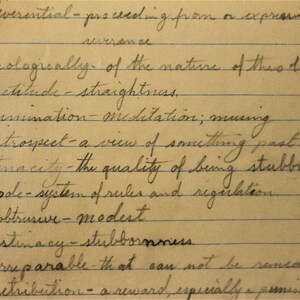 everential - proceeding from or expressi
reverence
eologically - of the nature of theol
ctitude - straightness.
umination - meditation; musing
trospect - a view of something past
nacity - the quality of being stubbo
ode - system of rules and regulation.
obtrusive - modest
stinacy - stubbornness.
rreparable - that can not be remed
etribution - a reward, especially a